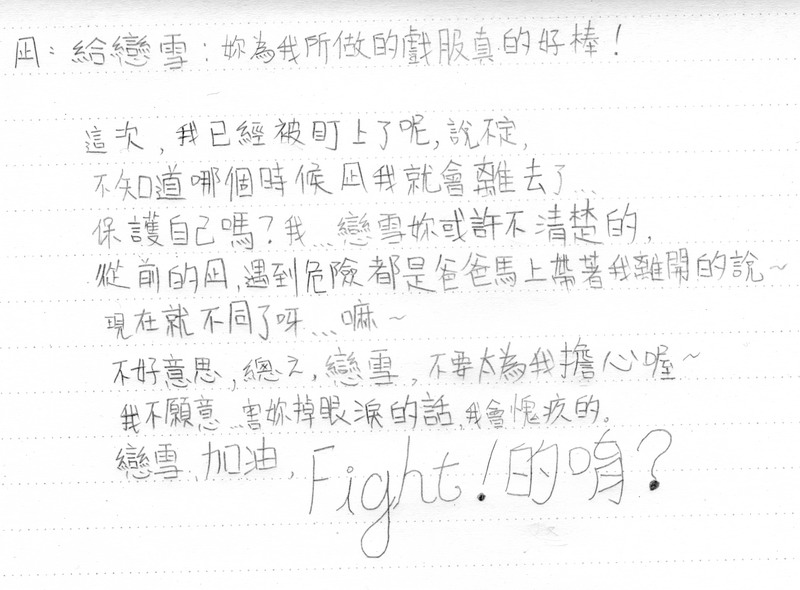 凪：給戀雪：妳為我所做的戲服真的好棒！
這次，我已經被盯上了呢，說不定，
不知道哪個時候凪我就會離去了…
保護自己嗎？我…戀雪妳或許不清楚的，
從前的凪，遇到危險都是爸爸馬上帶著我離開的說～
現在就不同了呀…嘛～
不好意思，總之，戀雪，不要太為我擔心喔～
我不願意…害妳掉眼淚的話，我會愧疚的。
戀雪，加油，Fight！的唷？